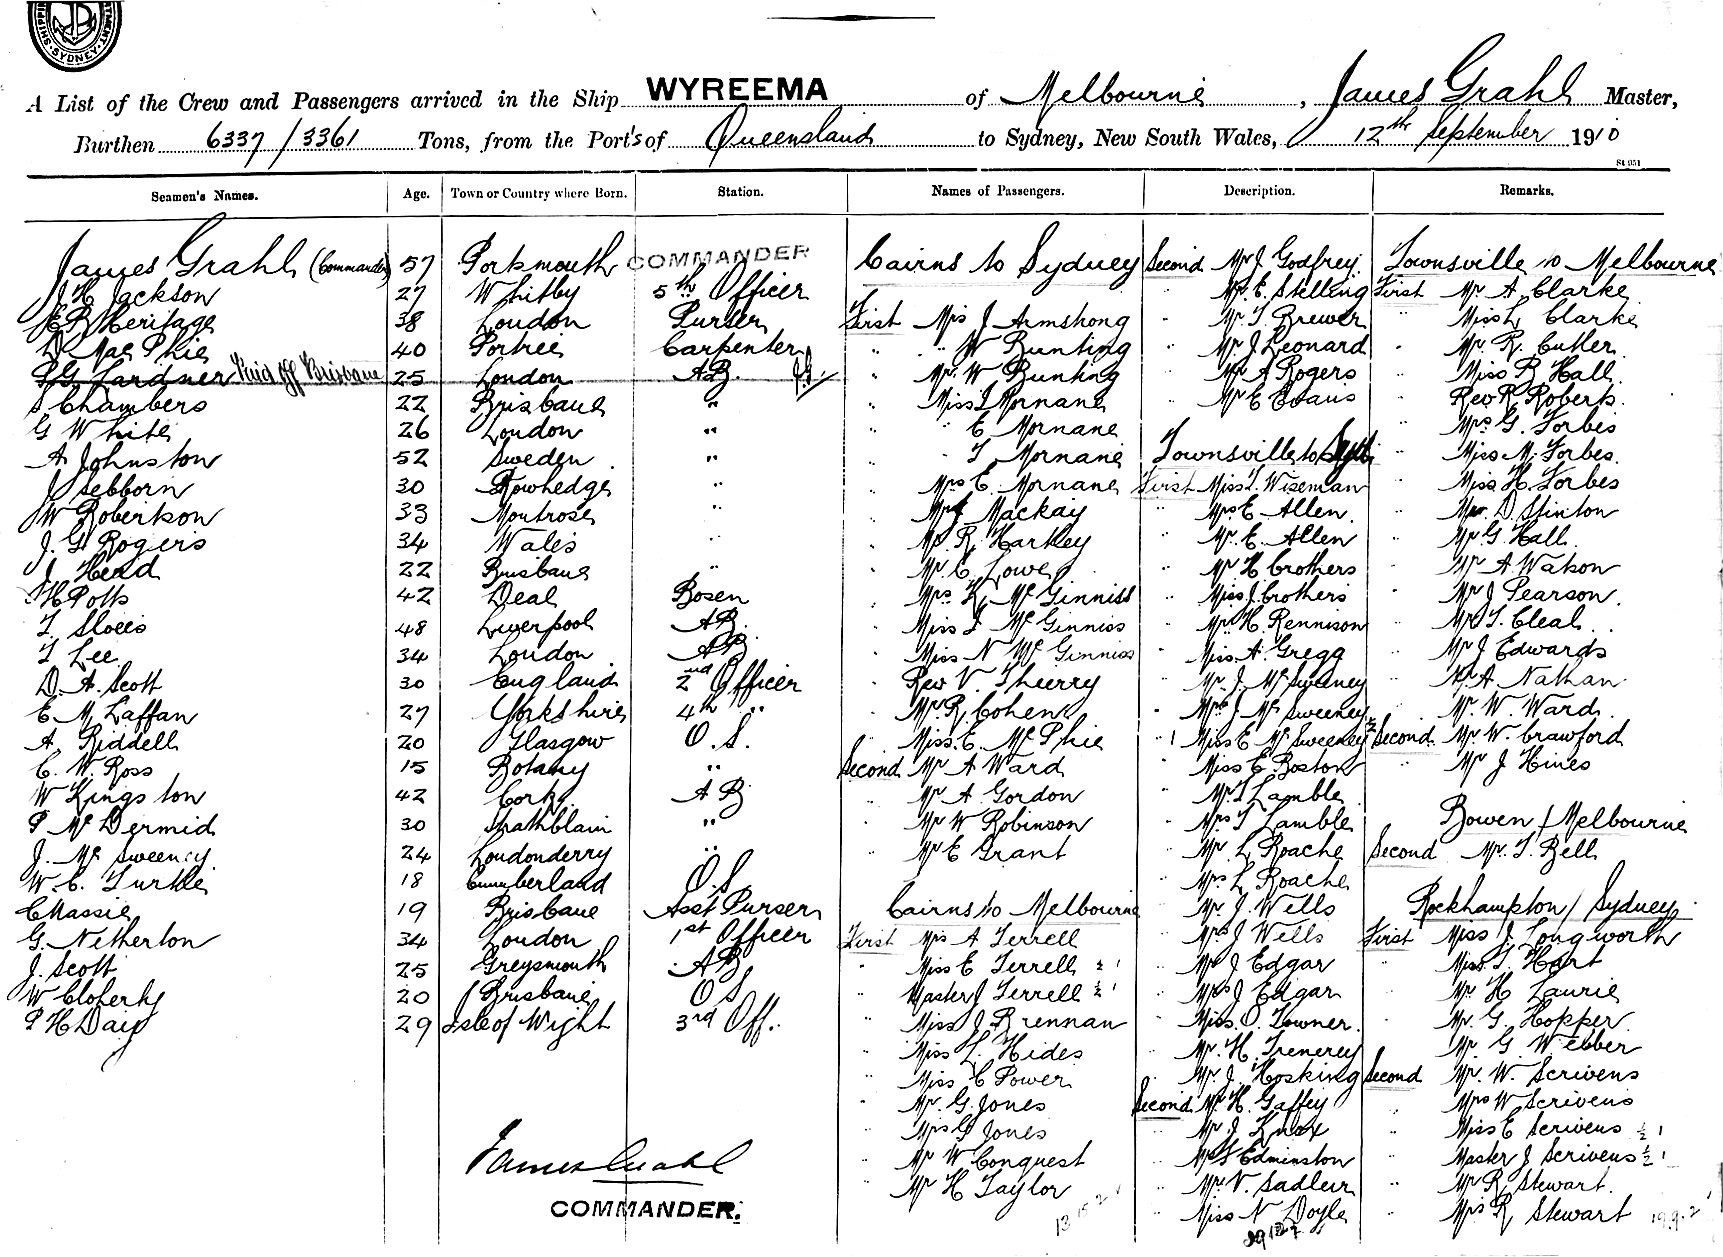 SHIPPING DEPARTMENT. SYDNEY.
A List of the Crew and Passengers arrived in the Ship WYREEMA of Melbourne, James Grahl Master,
Burthen 6337/3361 Tons, from the Port's of Queensland to Sydney, New South Wales, 12th September 1910
St 951
Seamen's Names. Age. Town or Country where Born. Station.
James Grahl (Commander) 57 Portsmouth COMMANDER
J H Jackson 27 Whitby 5th Officer
Heritage 38 London Purser
D. Mac Phie 40 Portree Carpenter
Gardner Paid off Brisbane 25 London A.B. JG
S Chambers 22 Brisbane "
G White 26 London "
A Johnston 52 Sweden "
J Sebborn 30 Rowhedge "
W Robertson 33 Montrose "
J. G Rogers 34 Wales "
J Herd 22 Brisbane "
H Potts 42 Deal Bosen
T. 48 Liverpool A.B.
T Lee 34 London A.B.
D. A. Scott 30 England 2nd Officer
E M Laffan 27 Yorkshire 4th "
A. Riddell 20 Glasgow O. S.
C. W. Ross 15 Botany "
W Kingston 42 Cork A B
P Mc Dermid 30 Strathblain "
J. Mc Sweeney 24 Londonderry "
W. C. Turtle 18 Cumberland O.S.
C Massie 19 Brisbane Asst Purser
G. Netherton 34 London 1st Officer
J. Scott 25 Greysmouth A.B.
W Cloherty 20 Brisbane O S
P H Day 29 Isle of Wight 3rd Off.
James Grahl
COMMANDER.
Names of Passengers.
Cairns to Sydney
First Mrs J Armstrong
" " W Bunting
" Mr. W Bunting
" Miss I Mornane
" " E Mornane
" " T Mornane
" Mrs E. Mornane
" Mr J Mackay
" Mr. R. Hartley
" Mr. C Lowe
" Mrs K. Mc Ginniss
" Miss I Mc Ginniss
" Miss N Mc Ginniss
" Rev V. Thierry
" Mr. R. Cohen
" Miss. E. Mc Phie
Second Mr A Ward
" Mr A. Gordon
" Mr W Robinson
" Mr E Grant
Cairns to Melbourne
First Mrs A Terrell
" Miss E Terrell ½ 1
" Master J Terrell ½ 1
" Miss J Brennan
" Miss L. Hides
" Miss C Power
" Mr. G. Jones
" Mrs G Jones
" Mr W Conquest
" Mr H Taylor
13 15 2 1
Description.
Second Mr J. Godfrey.
" Mr. E. Stelling
" Mr. T. Brewer
" Mr. J. Leonard
" Mr A Rogers
" Mr E Evans
Townsville to Sydney
First Miss I. Wiseman
" Mrs E. Allen.
" Mr. E. Allen
" Mr H Crothers
" Miss J. Crothers
" Mr. H. Rennison
" Miss. A. Gregg
" Mr. J. Mc Sweeney
" Mrs J Mc Sweeney
" Miss E Mc Sweeney ½ 1
" Miss E Boston
" Mr. T Lamble
" Mrs T Lamble
" Mr. L Roache
" Mrs. L Roache
" Mr. J. Wells
" Mrs J Wells
" Mr J Edgar
" Mrs J. Edgar
" Miss. O. Towner.
" Mr. H. Trenerey
" Mr. J. Hosking
Second Mr. H. Gaffey
" Mr. J Knox
" Edminston
" Mr. V. Sadleir
" Miss N Doyle
Remarks.
Townsville to Melbourne
First Mr A Clarke
" Miss L Clarke
" Mr R. Cutler
" Miss R Hall
" Rev R. Roberts.
" Mrs G. Forbes
" Miss M. Forbes.
" Miss H. Forbes
" D. Stinton
" Mr G. Hall
" Mr A Watson
" Mr J Pearson.
" Mr T. Cleal.
" Mr J. Edwards
" Mr. A. Nathan
" Mr. W. Ward.
Second Mr. W. Crawford
" Mr J Hines
Bowen / Melbourne
Second Mr. T. Bell
Rockhampton / Sydney
First Miss J. Longworth
" Miss T. Hart
" Mr H Laurie
" Mr. G Hopper.
" Mr. G Webber
Second Mr. W. Scrivens
" Mrs W Scrivens
" Miss E Scrivens ½ 1
" Master J Scrivens ½ 1
" Mr R. Stewart.
" Mrs R. Stewart
19.9.2 1